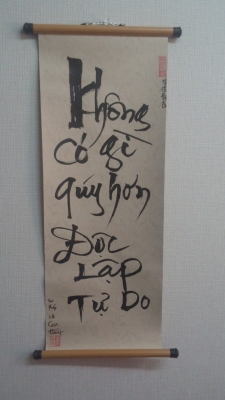 Không
có gì
quý hơn
Độc
Lập
Tự Do